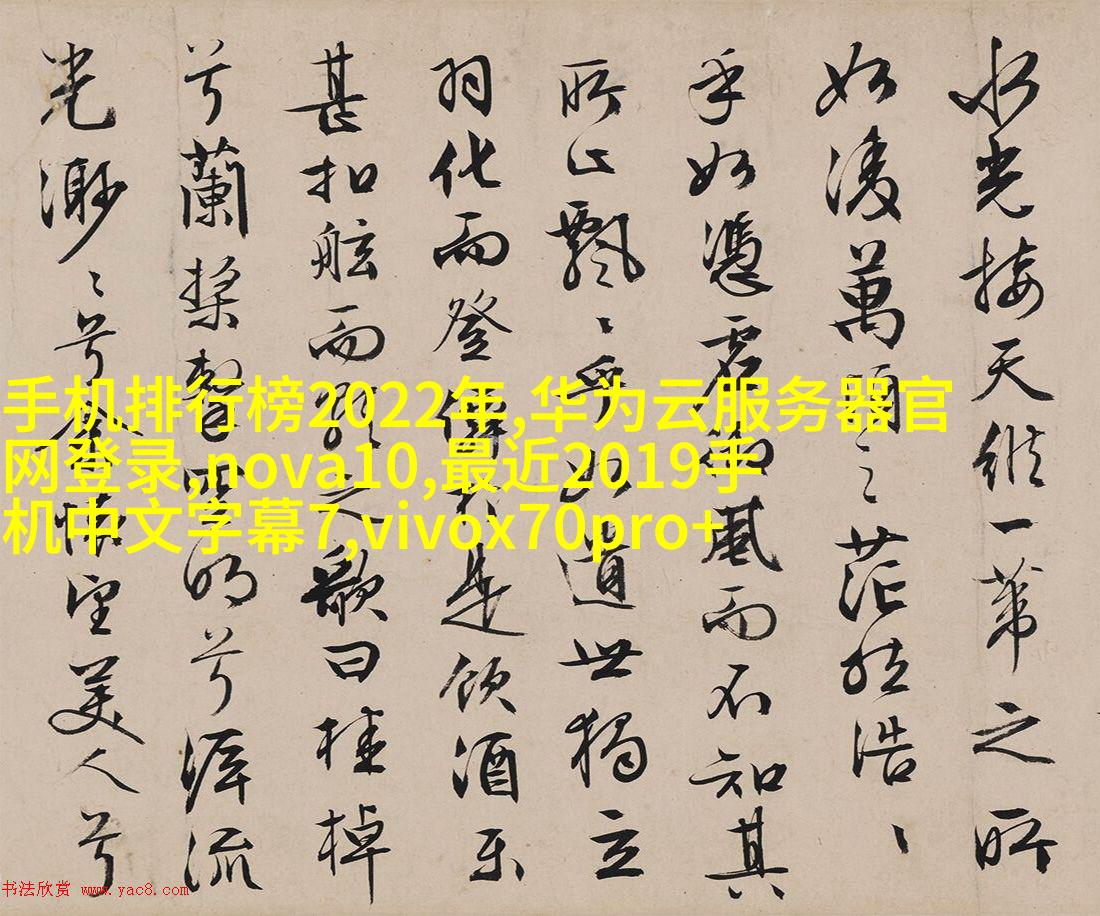 水光接天縱一葦之所
如凌萬頃之茫然浩〻
乎如憑虛御風而不知其
所止飄〻乎如遺世獨立
羽化而登僊於是飲酒樂
甚扣舷而歌之歌曰桂棹
兮蘭槳擊空明兮泝流
光渺〻兮余懷望美人兮
手机排行榜2022年,华为云服务器官
网登录,nova10,最近2019手
机中文字幕7,vivox70pro+
书法欣赏 www.yac8.com